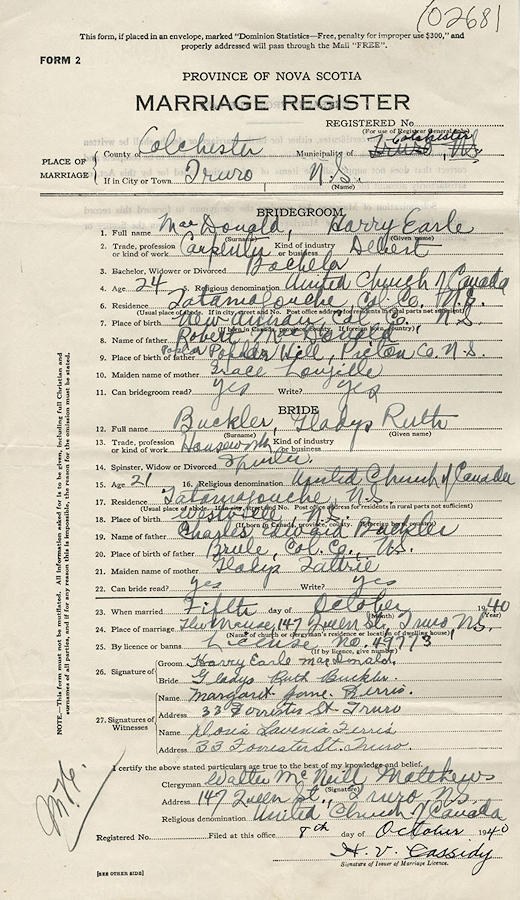 02681
This form, if placed in an envelope, marked "Dominion Statistics—Free, penalty for improper use $300," and
properly addressed will pass through the Mail "FREE".
FORM 2
PROVINCE OF NOVA SCOTIA
MARRIAGE REGISTER
REGISTERED No.
(For use of Registrar General only)
PLACE OF MARRIAGE
County of Colchester Municipality of Truro, NS Colchester
If in City or Town Truro N.S.
(Name)
BRIDEGROOM
1. Full name MacDonald, Harry Earle
(Surname) (Given name)
2. Trade, profession or kind of work Carpenter Kind of industry or business Debert
3. Bachelor, Widower or Divorced Bachelor
4. Age 24 5. Religious denomination United Church of Canada
6. Residence Tatamagouche, Col. Co. N.S.
(Usual place of abode. If in city, street and No. Post office address for residents in rural parts not sufficient)
7. Place of birth New Annan, Col. Co. N.S.
(If born in Canada, province, county. If foreign born, country)
8. Name of father Robert MacDonald
9. Place of birth of father Poplar Hill, Pictou Co. N.S.
10. Maiden name of mother Grace
11. Can bridegroom read? Yes Write? Yes
BRIDE
12. Full name Buckler, Gladys Ruth
(Surname) (Given name)
13. Trade, profession or kind of work Housework Kind of industry or business
14. Spinster, Widow or Divorced Spinster
15. Age 21 16. Religious denomination United Church of Canada
17. Residence Tatamagouche, N.S.
(Usual place of abode. If in city, street and No. Post office address for residents in rural parts not sufficient)
18. Place of birth Westville, N.S.
(If born in Canada, province, county. If foreign born, country)
19. Name of father Charles Edward Buckler
20. Place of birth of father Brule, Col. Co., N.S.
21. Maiden name of mother Gladys
22. Can bride read? Yes Write? Yes
23. When married Fifth day of October 1940
(Month) (Year)
24. Place of marriage The Manse, 147 Queen St., Truro N.S.
(Name of church or clergyman's residence or location of dwelling house)
25. By licence or banns License No. 49773
(If by licence, give number)
26. Signature of
Groom Harry Earle MacDonald
Bride Gladys Ruth Buckler
27. Signatures of Witnesses
Name Margaret Jane Ferris.
Address 33 Forrester St Truro
Name Doris Lavenia Ferris
Address 33 Forrester St. Truro.
I certify the above stated particulars are true to the best of my knowledge and belief.
Clergyman Walter McNeill Matthews
(Signature)
Address 147 Queen St., Truro N.S.
Religious denomination United Church of Canada
Registered No. Filed at this office 8th day of October 1940
H. V. Cassidy
Signature of Issuer of Marriage Licence.
[SEE OTHER SIDE]
NOTE.—This form must not be mutilated. All information asked for is to be given, including full Christian and
surnames of all parties, and if for any reason this is impossible, the reason for the omission must be stated.